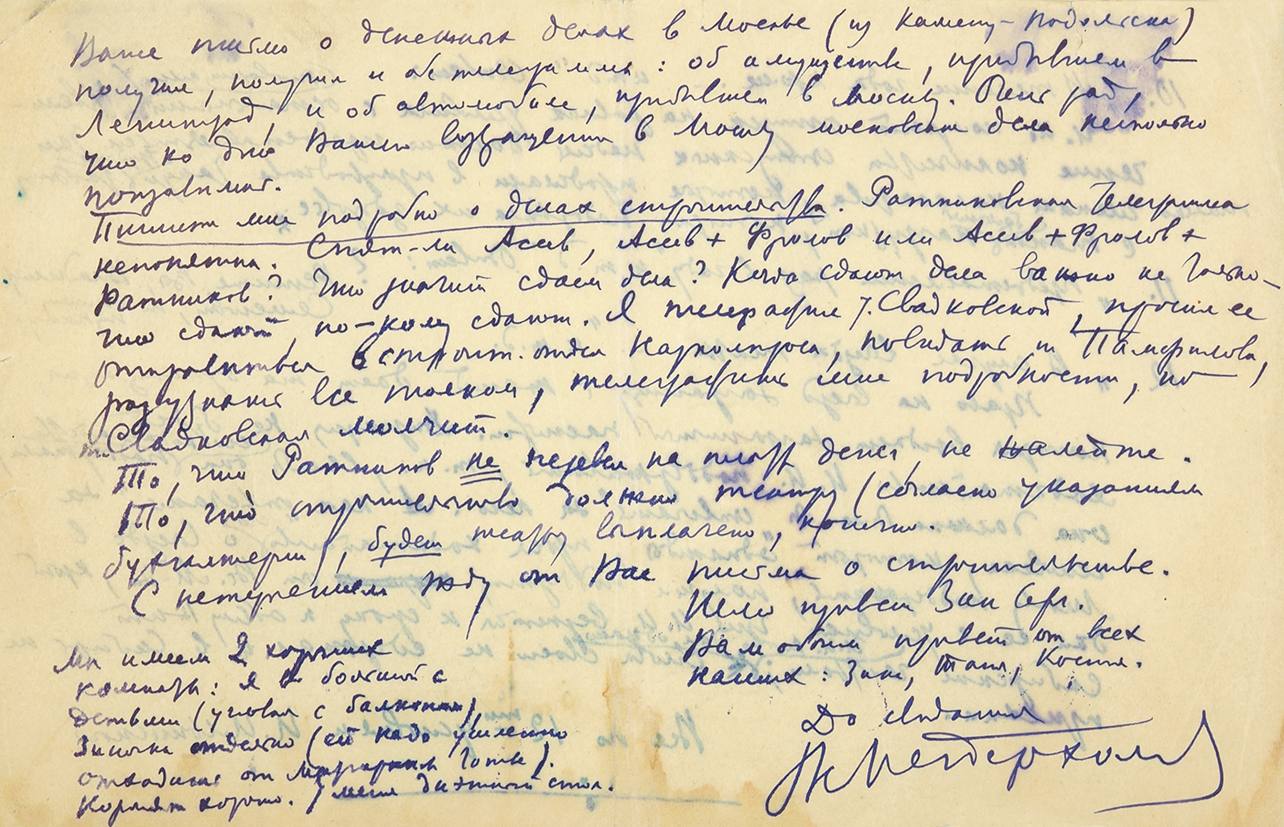 Ваше письмо о денежных делах в Москве (из Каменец-Подольска)
получил, получил и обе телеграммы: об имуществе, прибывшем в
Ленинград, и об автомобиле, прибывшем в Москву. Очень рад,
что ко дню Вашего возвращения в Москву московские дела несколько
Пишите мне подробно о делах строительства. Ратниковская телеграмма
непонятна. Снят-ли Асеев, Асеев + Фролов или Асеев + Фролов +
Ратников? Что значит сдаем дела? Когда сдают дела важно не только-
что сдают, но-кому сдают. Я телеграфил т. Сладковской, просил ее
отправиться в строит. отдел Наркомпроса, повидать т. Памфилова,
разузнать все толком, телеграфить мне подробности, но
т. Сладковская молчит.
То, что Ратников не перевел на театр денег, не жалейте.
То, что строительство должно театру (согласно указаниям
бухгалтерии), будет театру выплачено, конечно.
С нетерпением жду от Вас письма о строительстве.
Шлю привет Зин. Серг.
Вам обоим привет от всех
наших: Зин, Таня, Костя.
До свидания
В. Мейерхольд
Мы имеем 2 хороших
комнаты: я в большой с
детьми (угловая с балконом),
Зиночка отдельно (ей надо усиленно
отходить от Маргариты Готье).
Кормят хорошо. У меня диэтный стол.